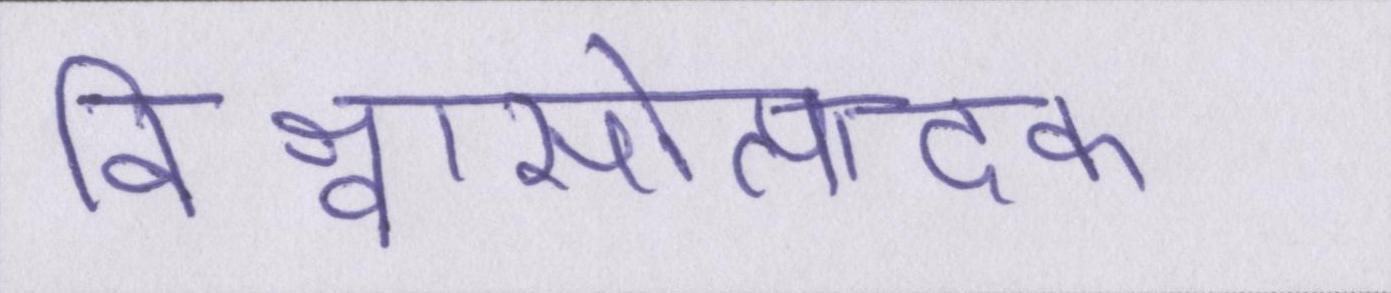 विश्वासोत्पादक